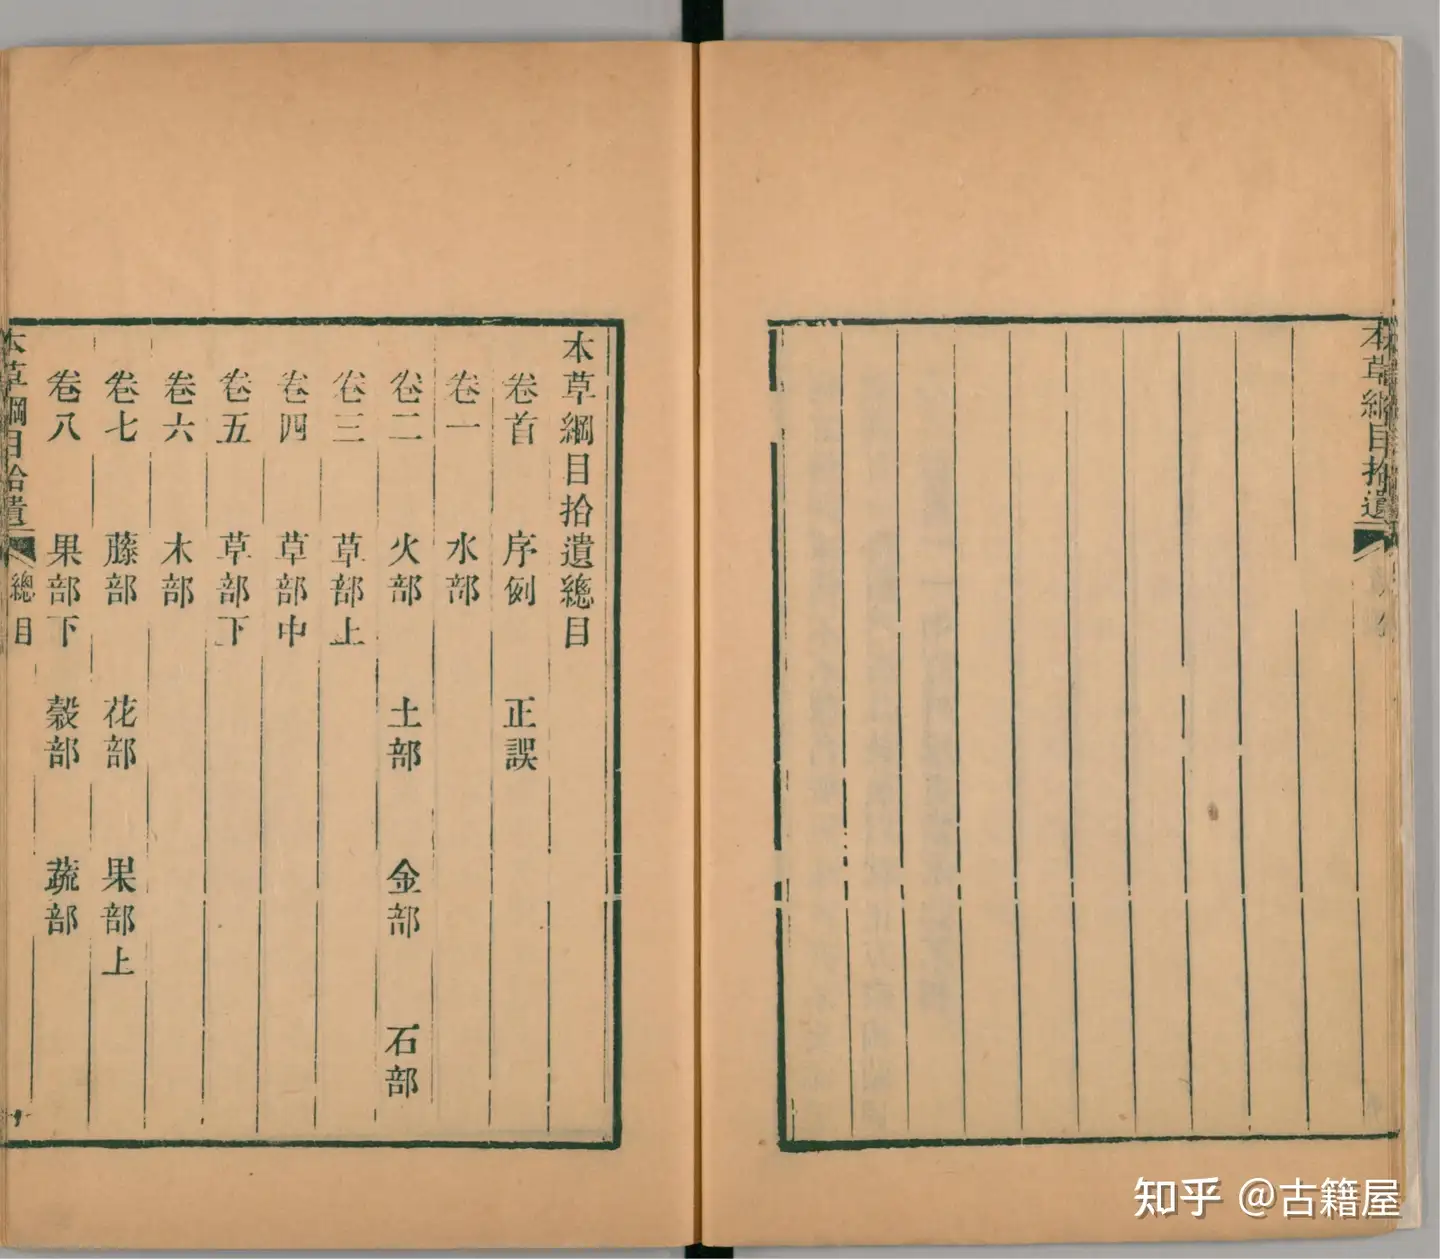 本草綱目拾遺
本草綱目拾遺總目
卷首 序例 正誤
卷一 水部
卷二 火部 土部 金部 石部
卷三 草部上
卷四 草部中
卷五 草部下
卷六 木部
卷七 藤部 花部 果部上
卷八 果部下 穀部 蔬部
本草綱目拾遺 總目
知乎 @古籍屋